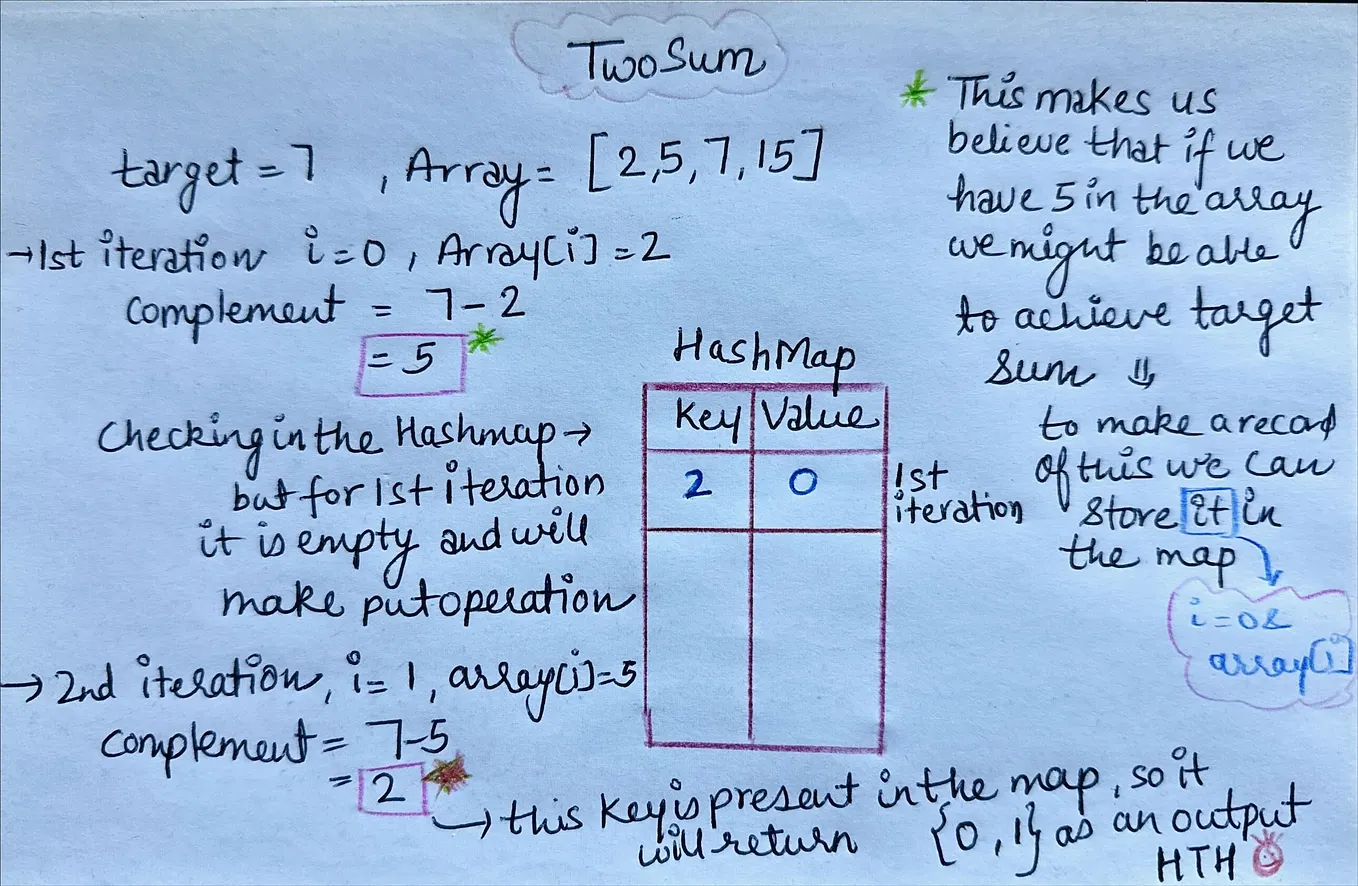 TwoSum
target = 7 , Array = [2,5,7,15]
→1st iteration i=0 , Array[i] = 2
complement = 7-2
= 5 *
Checking in the Hashmap →
but for 1st iteration
it is empty and will
make put operation
→ 2nd iteration, i=1, array[i]=5
complement = 7-5
= 2 *
→ this key is present in the map, so it
will return {0,1} as an output
HTH
HashMap
Key Value
2 0
1st
iteration
* This makes us
believe that if we
have 5 in the array
we might be able
to achieve target
sum ⇓
to make a record
of this we can
store it in
the map
i=0&
array[i]